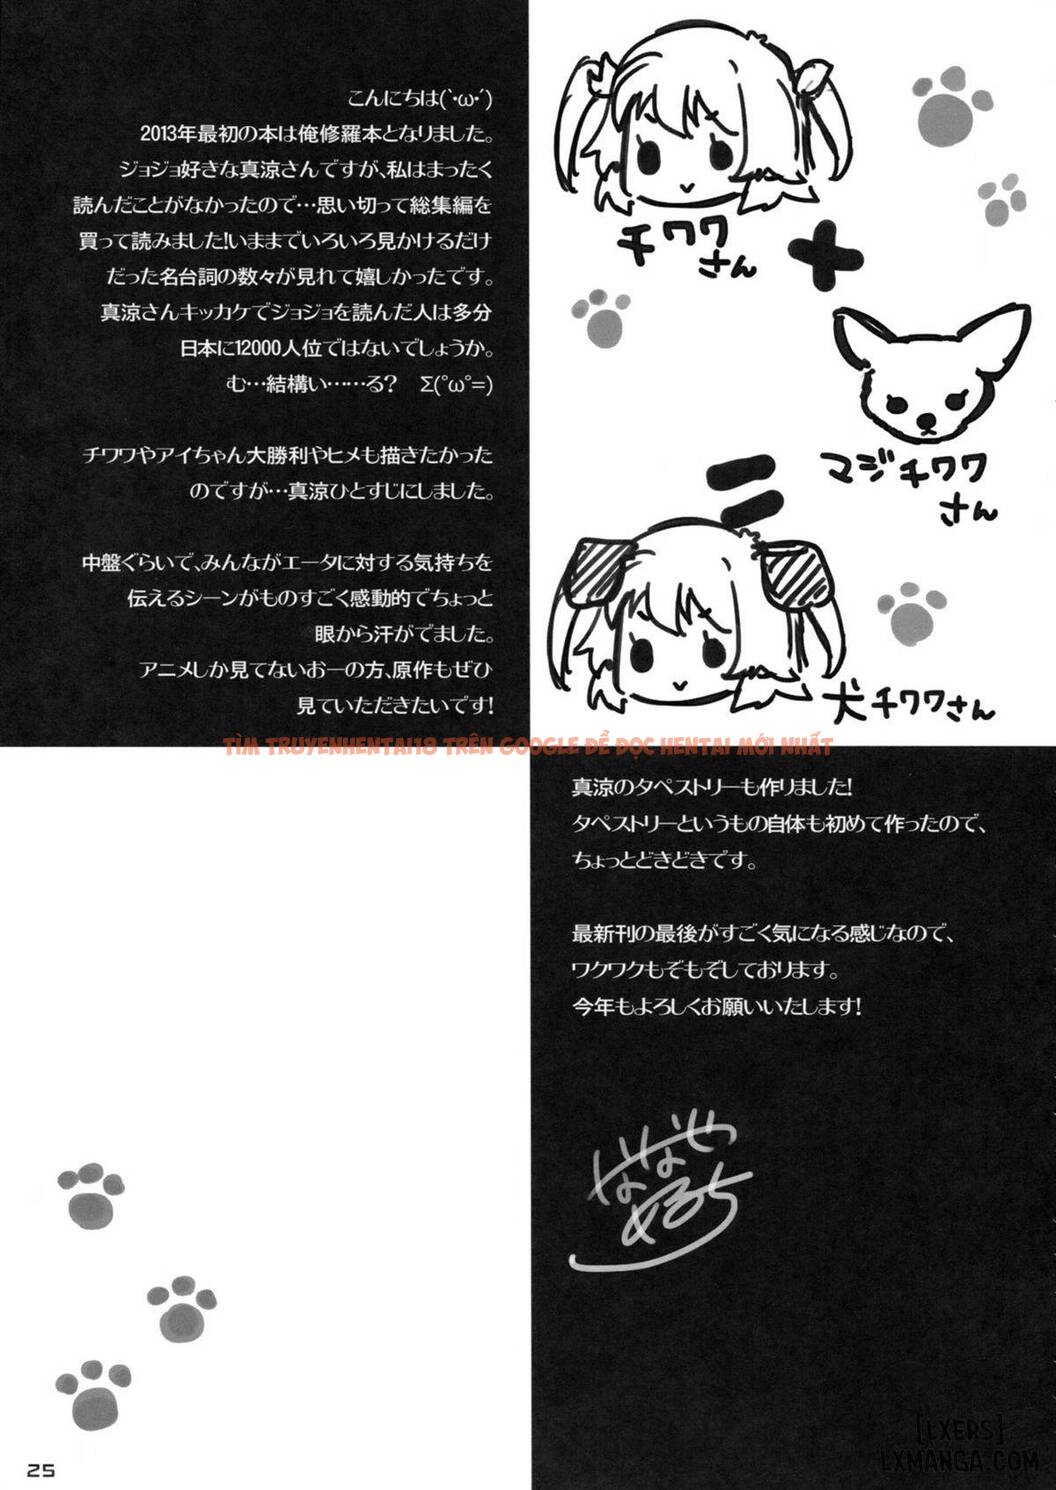 こんにちは(`･ω･´)
2013年最初の本は俺修羅本となりました。
ジョジョ好きな真涼さんですが、私はまったく
読んだことがなかったので…思い切って総集編を
買って読みました!いままでいろいろ見かけるだけ
だった名台詞の数々が見れて嬉しかったです。
真涼さんキッカケでジョジョを読んだ人は多分
日本に12000人位ではないでしょうか。
む…結構い……る?　Σ(°ω°=)
チワワやアイちゃん大勝利やヒメも描きたかった
のですが…真涼ひとすじにしました。
中盤ぐらいで、みんながエータに対する気持ちを
伝えるシーンがものすごく感動的でちょっと
眼から汗がでました。
アニメしか見てないおーの方、原作もぜひ
見ていただきたいです!
チワワ
さん
+
マジチワワ
さん
=
犬チワワさん
TÌM TRUYENHENTAI18 TRÊN GOOGLE ĐỂ ĐỌC HENTAI MỚI NHẤT
真涼のタペストリーも作りました!
タペストリーというもの自体も初めて作ったので、
ちょっとどきどきです。
最新刊の最後がすごく気になる感じなので、
ワクワクもぞもぞしております。
今年もよろしくお願いいたします!
ななせ
めるち
25
[LXERS]
LXMANGA.COM